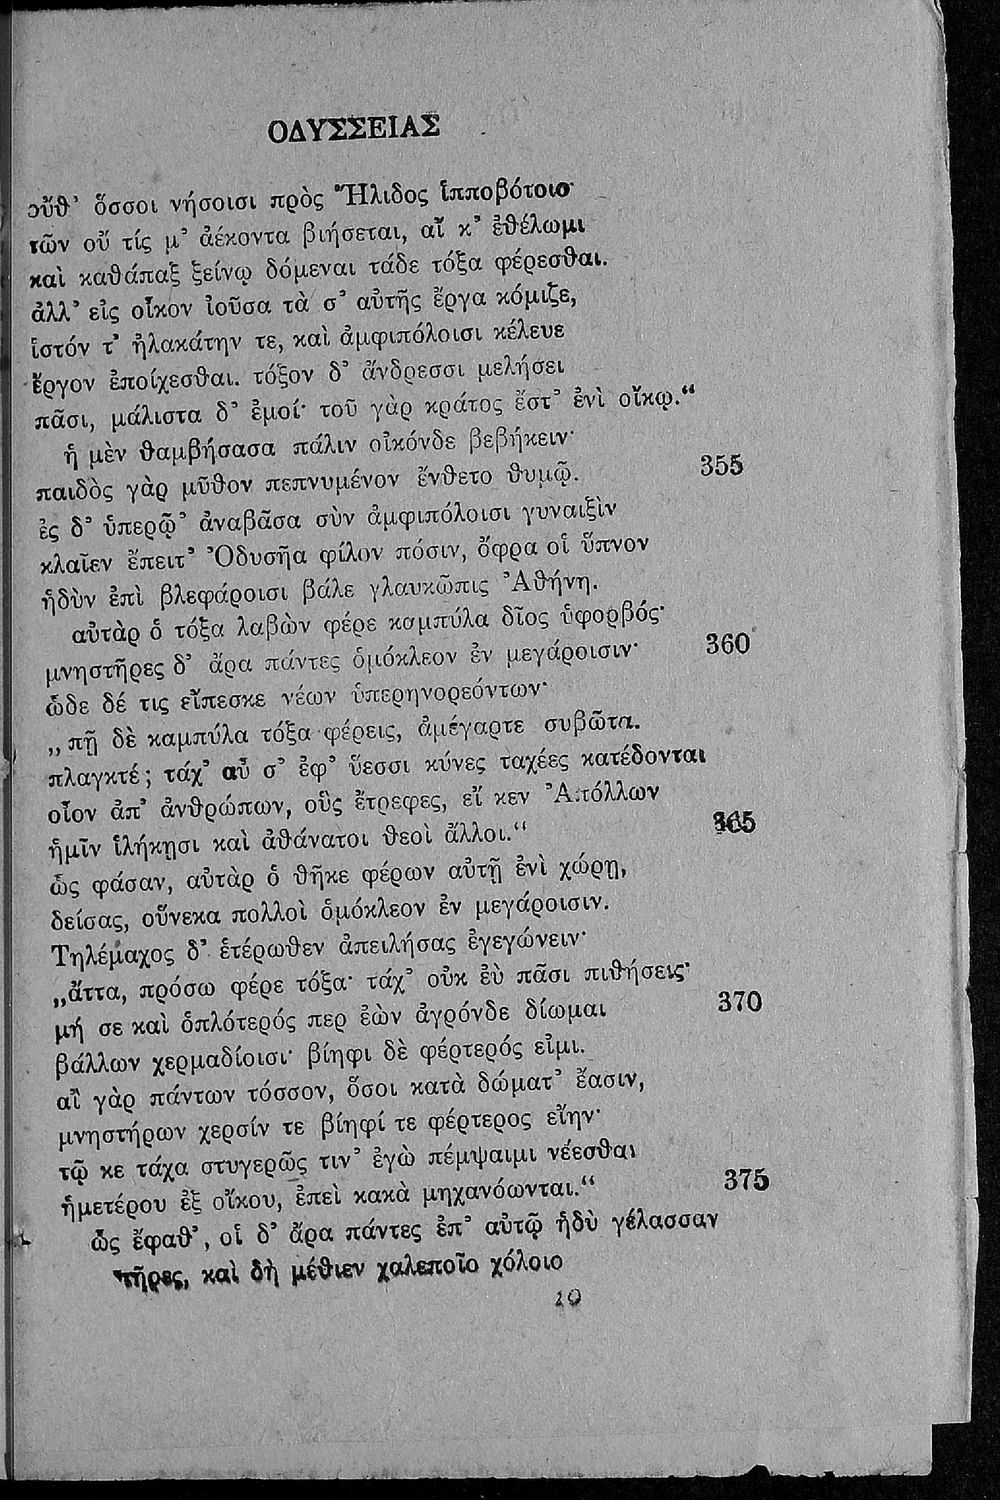 ΟΔΥΣΣΕΙΑΣ
οὔθ᾽ ὅσσοι νήσοισι πρὸς Ἤλιδος ἱπποβότοιο·
τῶν οὔ τίς μ᾽ ἀέκοντα βιήσεται, αἴ κ᾽ ἐθέλωμι
καὶ καθάπαξ ξείνῳ δόμεναι τάδε τόξα φέρεσθαι.
ἀλλ᾽ εἰς οἶκον ἰοῦσα τὰ σ᾽ αὐτῆς ἔργα κόμιζε,
ἱστόν τ᾽ ἠλακάτην τε, καὶ ἀμφιπόλοισι κέλευε
ἔργον ἐποίχεσθαι. τόξον δ᾽ ἄνδρεσσι μελήσει
πᾶσι, μάλιστα δ᾽ ἐμοί· τοῦ γὰρ κράτος ἔστ᾽ ἐνὶ οἴκῳ.“
ἡ μὲν θαμβήσασα πάλιν οἰκόνδε βεβήκειν·
παιδὸς γὰρ μῦθον πεπνυμένον ἔνθετο θυμῷ. 355
ἐς δ᾽ ὑπερῷ᾽ ἀναβᾶσα σὺν ἀμφιπόλοισι γυναιξὶν
κλαῖεν ἔπειτ᾽ Ὀδυσῆα φίλον πόσιν, ὄφρα οἱ ὕπνον
ἡδὺν ἐπὶ βλεφάροισι βάλε γλαυκῶπις Ἀθήνη.
αὐτὰρ ὁ τόξα λαβὼν φέρε καμπύλα δῖος ὑφορβός·
μνηστῆρες δ᾽ ἄρα πάντες ὁμόκλεον ἐν μεγάροισιν· 360
ὧδε δέ τις εἴπεσκε νέων ὑπερηνορεόντων·
„πῇ δὲ καμπύλα τόξα φέρεις, ἀμέγαρτε συβῶτα.
πλαγκτέ; τάχ᾽ αὖ σ᾽ ἐφ᾽ ὕεσσι κύνες ταχέες κατέδονται
οἶον ἀπ᾽ ἀνθρώπων, οὓς ἔτρεφες, εἴ κεν Ἀπόλλων
ἡμῖν ἱλήκῃσι καὶ ἀθάνατοι θεοὶ ἄλλοι.“ 365
ὣς φάσαν, αὐτὰρ ὁ θῆκε φέρων αὐτῇ ἐνὶ χώρῃ,
δείσας, οὕνεκα πολλοὶ ὁμόκλεον ἐν μεγάροισιν.
Τηλέμαχος δ᾽ ἑτέρωθεν ἀπειλήσας ἐγεγώνειν·
„ἄττα, πρόσω φέρε τόξα· τάχ᾽ οὐκ ἐὺ πᾶσι πιθήσεις·
μή σε καὶ ὁπλότερός περ ἐὼν ἀγρόνδε δίωμαι 370
βάλλων χερμαδίοισι· βίηφι δὲ φέρτερός εἰμι.
αἲ γὰρ πάντων τόσσον, ὅσοι κατὰ δώματ᾽ ἔασιν,
μνηστήρων χερσίν τε βίηφί τε φέρτερος εἴην·
τῷ κε τάχα στυγερῶς τιν᾽ ἐγὼ πέμψαιμι νέεσθαι
ἡμετέρου ἐξ οἴκου, ἐπεὶ κακὰ μηχανόωνται.“ 375
ὣς ἔφαθ᾽, οἱ δ᾽ ἄρα πάντες ἐπ᾽ αὐτῷ ἡδὺ γέλασσαν
τῆρες, καὶ δὴ μέθιεν χαλεποῖο χόλοιο
10